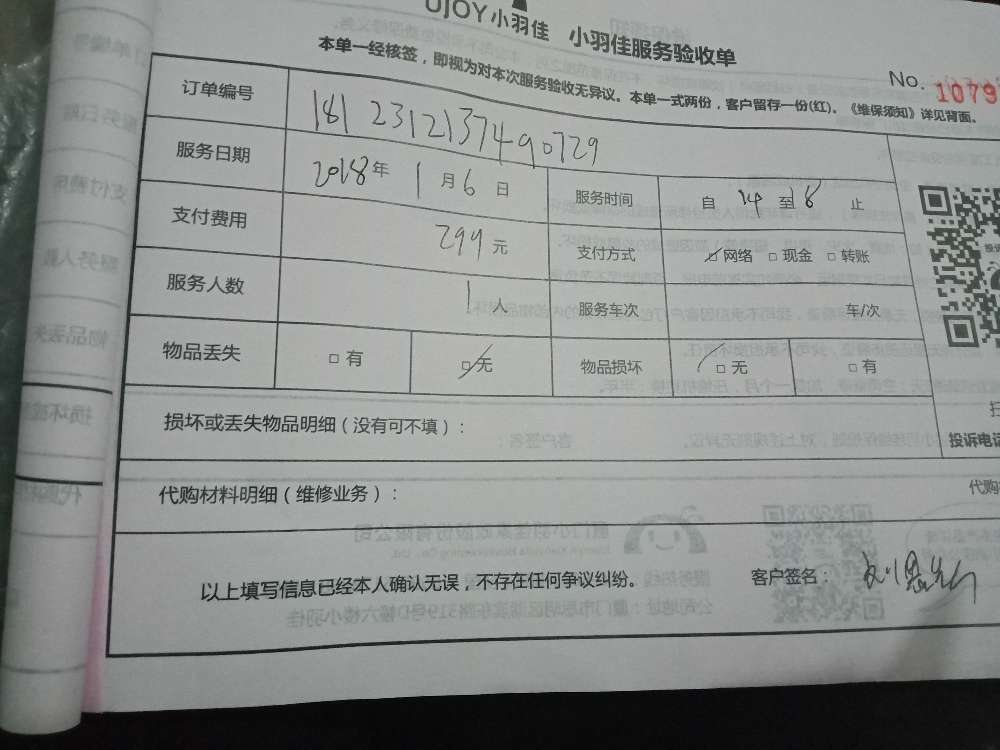 UJOY小羽佳 小羽佳服务验收单
本单一经核签，即视为对本次服务验收无异议。本单一式两份，客户留存一份(红)。《维保须知》详见背面。
No. 1079
订单编号 1812312137490729
服务日期 2018年1月6日 服务时间 自14至18止
支付费用 299元 支付方式 ☑网络 □现金 □转账
服务人数 1人 服务车次 车/次
物品丢失 □有 ☑无 物品损坏 ☑无 □有
损坏或丢失物品明细（没有可不填）：
投诉电话
代购材料明细（维修业务）：
代购
以上填写信息已经本人确认无误，不存在任何争议纠纷。
客户签名：